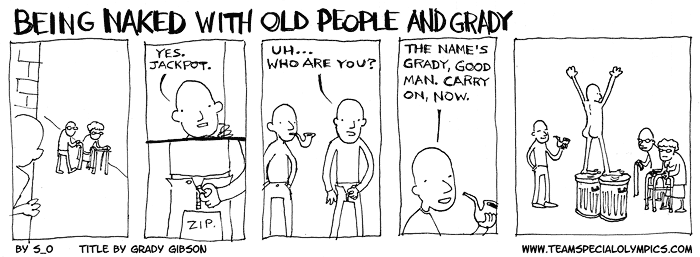 BEING NAKED WITH OLD PEOPLE AND GRADY
YES.
JACKPOT.
ZIP.
UH...
WHO ARE YOU?
THE NAME'S
GRADY, GOOD
MAN. CARRY
ON, NOW.
BY S_O
TITLE BY GRADY GIBSON
WWW.TEAMSPECIALOLYMPICS.COM